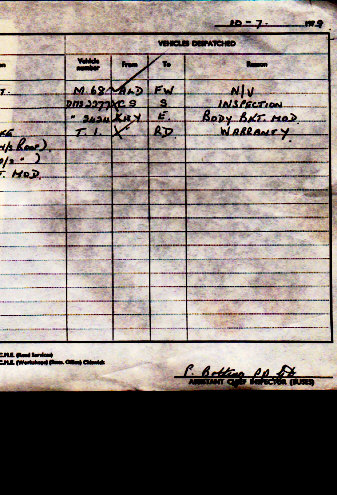 20 - 7. 1979.
VEHICLES DESPATCHED
Vehicle number From To Reason
T. M 68 ALD FW N/V
DMS 2277 CS S INSPECTION
" 2424 E. BODY BKT. MOD.
T. 1. RD WARRANTY
T. MOD.
C.M.E. (Road Services)
C.M.E. (Workshops) (Eqmt. Office) Chiswick
ASSISTANT CHIEF INSPECTOR (BUSES)